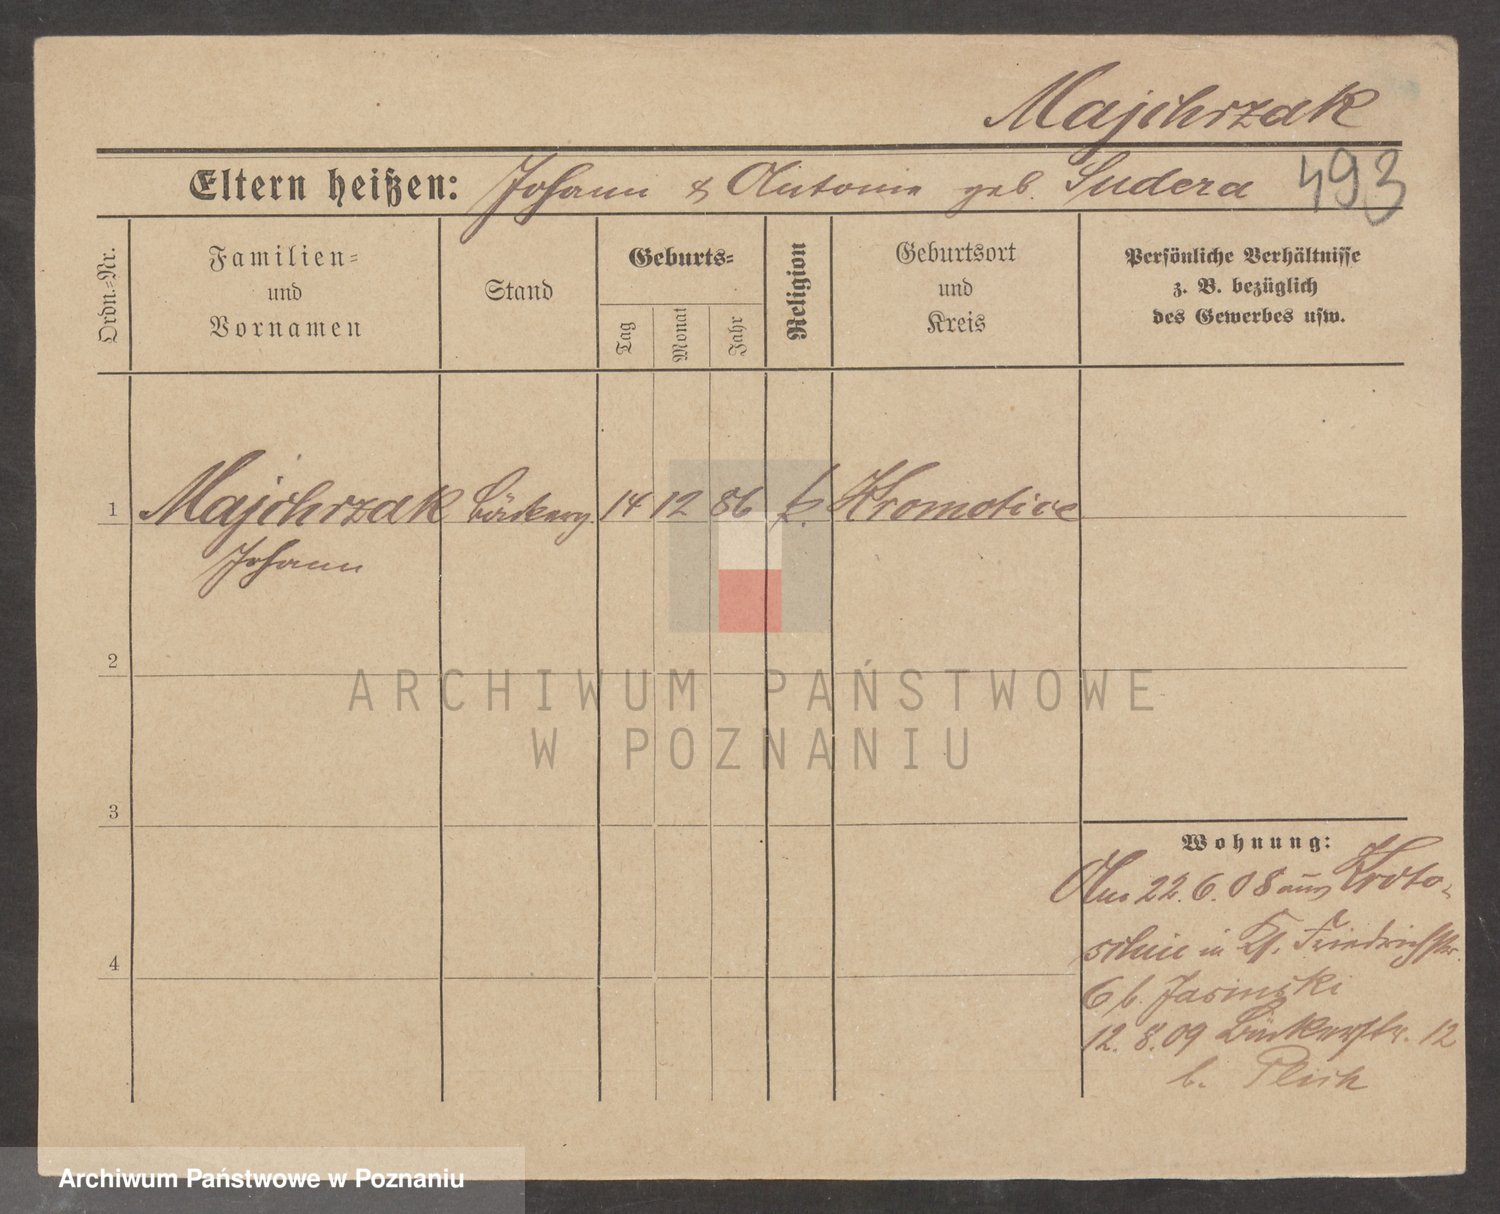 Majchrzak
Eltern heißen: Johann & Antonie geb. Sudera 493
Ordn.-Nr.
Familien-
und
Vornamen
Stand
Geburts-
Tag
Monat
Jahr
Religion
Geburtsort
und
Kreis
Persönliche Verhältnisse
z. B. bezüglich
des Gewerbes usw.
1 Majchrzak 14 12 86 k. Kromolice
Johann
2
ARCHIWUM PAŃSTWOWE
W POZNANIU
3
Wohnung:
22.6.08 aus Kroto-
schin in Friedrichstr.
6 b. Jasinski
4
12.8.09 Bäckerstr. 12
b.
Archiwum Państwowe w Poznaniu